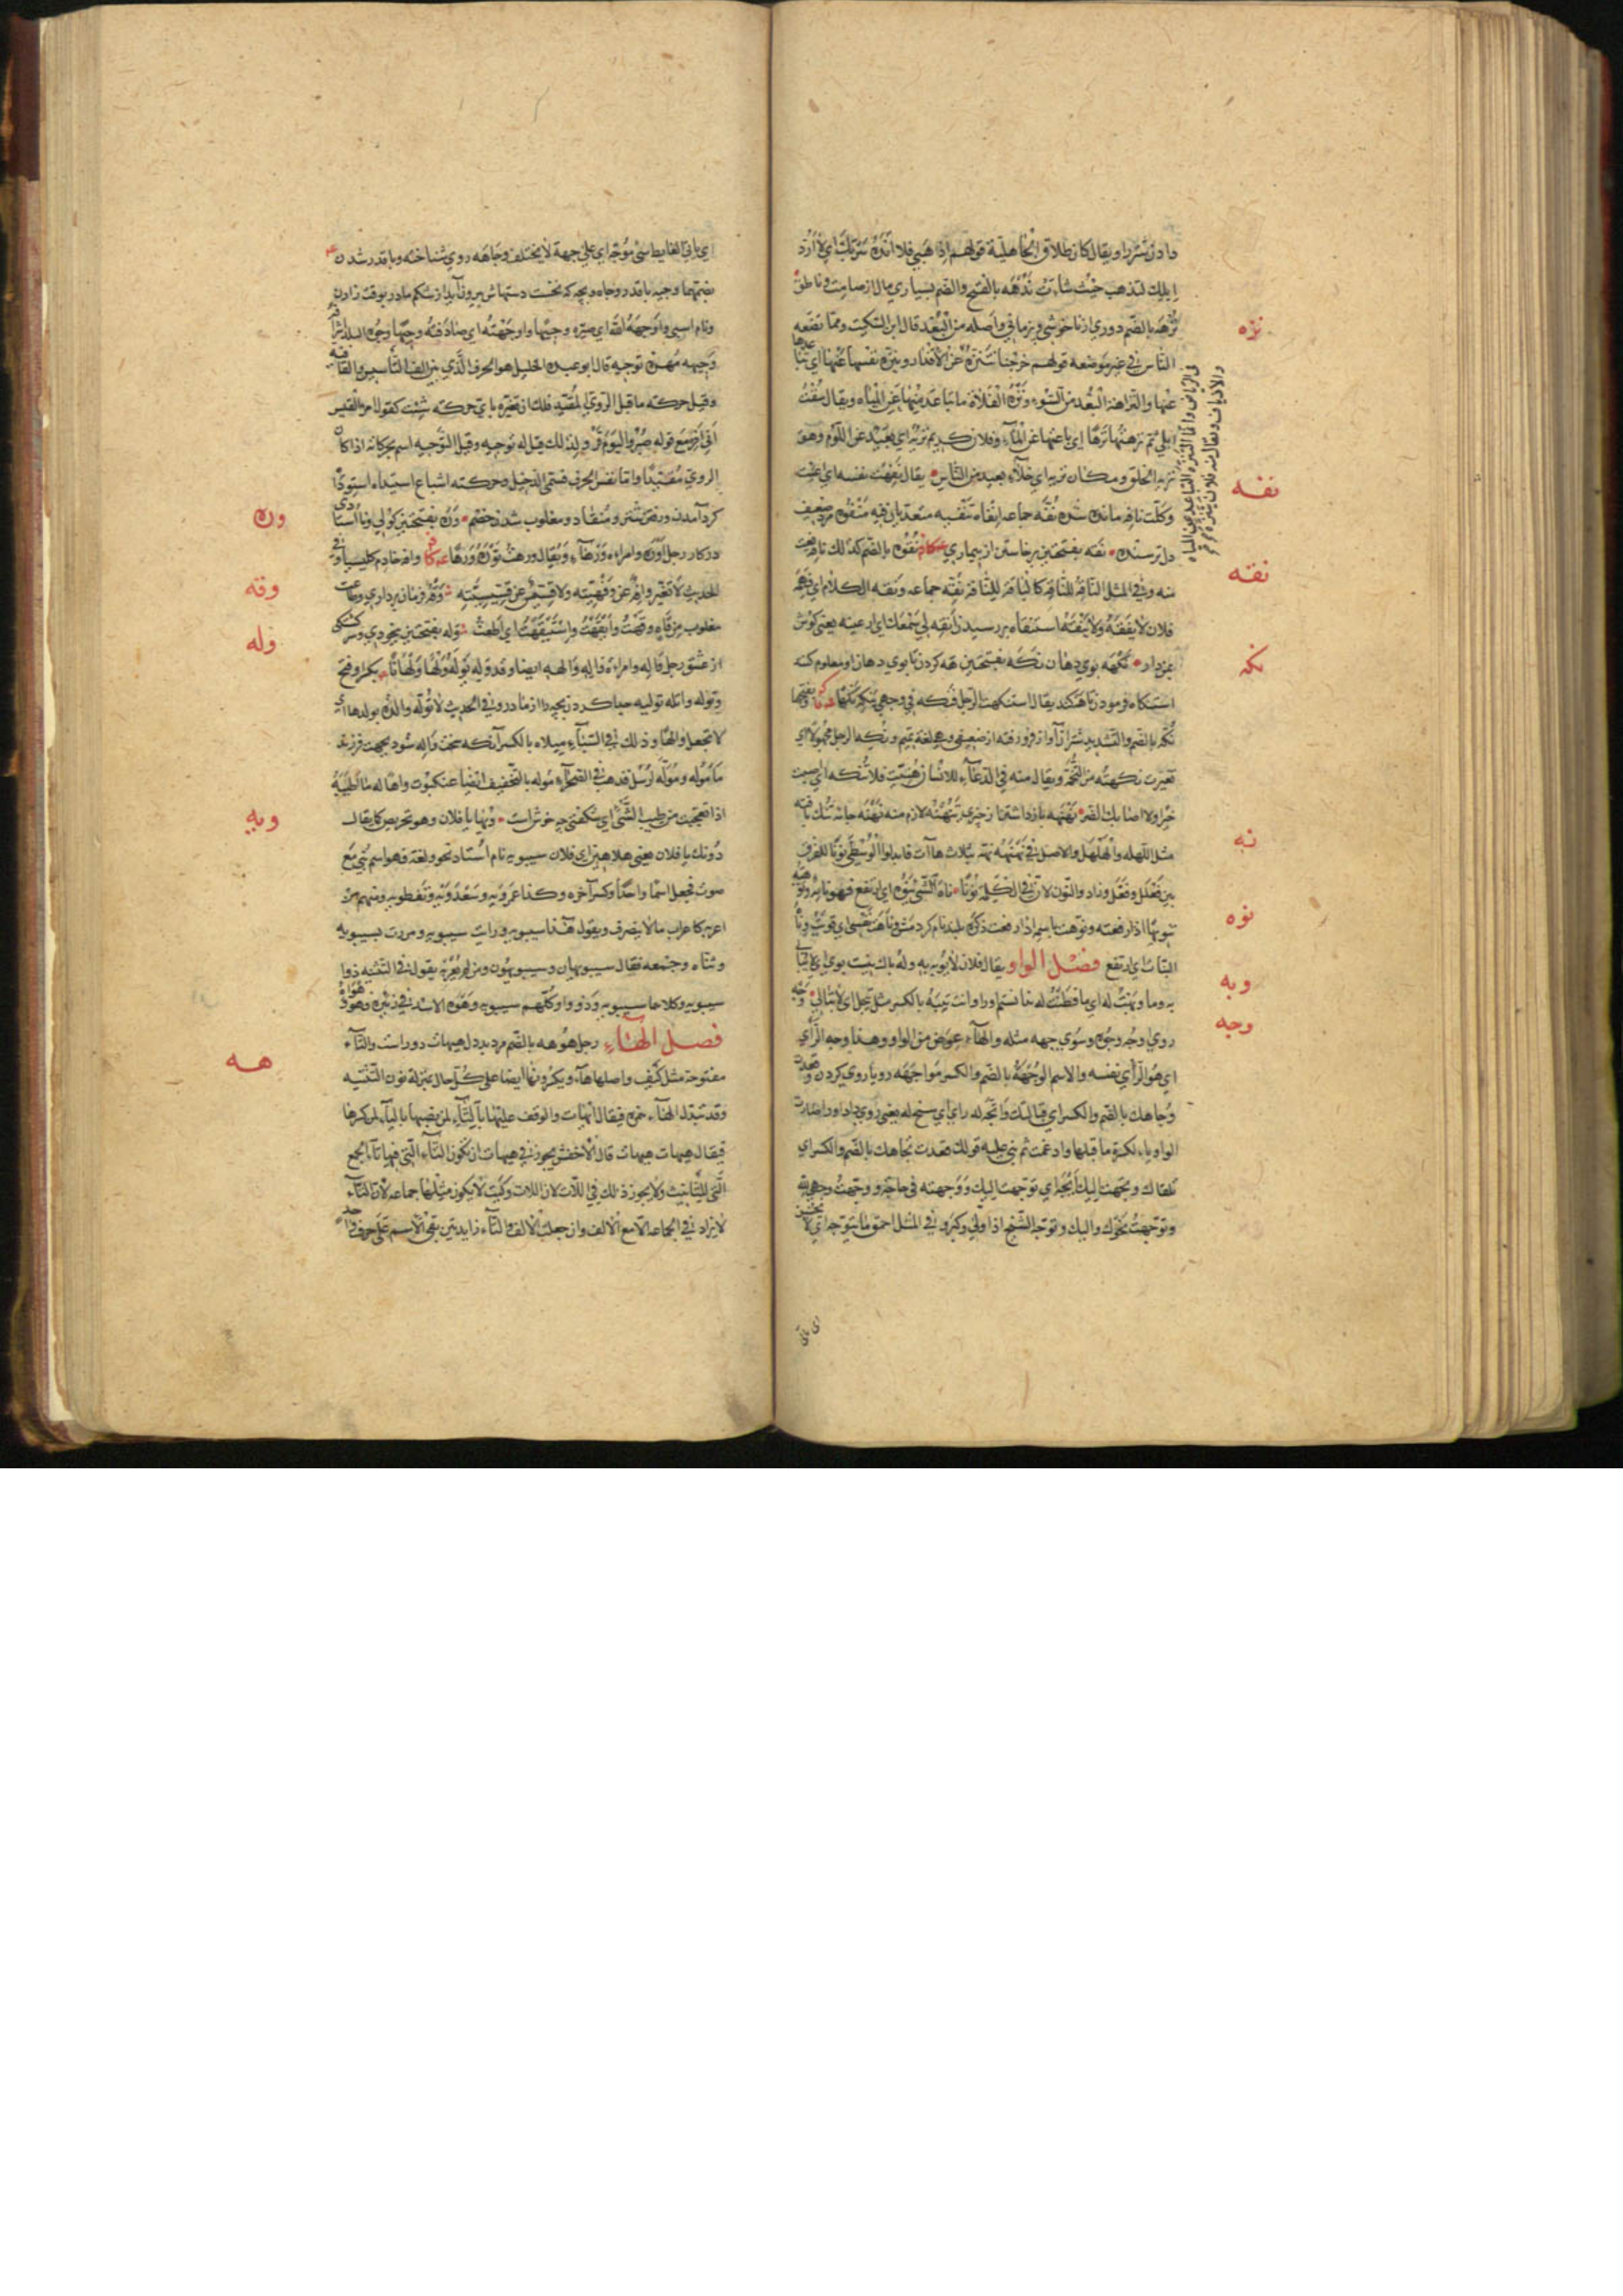 دادن شتررا ويقال كان طلاق الجاهلية قولهم اذهبي فلا انده سربك اي لا ارد
ابلك لتذهب حيث شاءت ندهه بالفتح والضم بسياري مال از صامت و ناطق
نزهه بالضم دوري از ناخوشي و اصله من البعد قال ابن السكيت ومما تضعه
الناس في غير موضعه قولهم خرجنا نتنزه عن الاقذار وينزه نفسها عنها اي تباعدها
عنها والنزاهة البعد من السوء ونزه الفلاة ما تباعد منها عن المياه ويقال سقيت
ابلي ثم نزهتها نزها اي باعدتها عن الماء وفلان كريم نزيه اي بعيد عن اللؤم وهو
نزيه الخلق ومكان نزيه اي خلاء بعيد من الناس يقال نفهت نفسه اي اعيت
وكلت نافه مانده شده نفه جماعه
دل ترسنده نقه بفتحتين برخاستن از بيماري نقوه بالضم كذلك ناقه نعت
منه نقه جماعه ونقه الكلام اي فهمه
فلان لا يفقه ولا ينقه استنقاه بررسيدن انقه لي سمعك اي ارعنيه يعني كوش
بمن دار نكهه بوي دهان نكه بفتحتين هه كردن تا بوي دهان او معلوم كند
استنكاه فرمودن تا هه كند يقال استنكهت الرجل فنكه في وجهي ينكه
نكه بالضم والتشديد شتران آواز فرو رفته از ضعيفي وهي لغة تميم ونكه الرجل مجهولا اي
تغيرت نكهته من التخمة ويقال منه في الدعاء للانسان هنيت فلا تنكه اي اصبت
خيرا ولا اصابك الضر نهنهه باز داشتن از چيزي تنهنه لازم منه نهنه جامه تنك بافته
مثل اللهله والهلهل والاصل في نهنه نهه بثلاث هاآت فابدلوا الوسطي نونا للفرق
بين فعلل وفعل وزاد والنون لان في الكلمة نونا ناه الشيء ينوه اي ارتفع فهو نايه
تنويها اذا رفعته ونوهت باسمه اذا رفعت ذكره بلند نام كرد مش وناهت نفسي اي قويت
النبات اي ارتفع فصل الواو يقال فلان لا يوبه به وله باك نيست بوي اي لا يبالي
به وما وبهت له اي ما فطنت له ندانستم اورا وانت تيبه بالكسر مثل تيجل اي لا تبالي وجه
روي وجه وجوه وسوي جهه مثله والهاء عوض من الواو وهذا وجه الراي
اي هو الراي نفسه والاسم الوجهة بالضم والكسر مواجهه روبا روي كردن وقعدت
وجاهك بالضم والكسر اي قبالتك واتجه له راي اي سنح له يعني روي داد اورا صارت
الواو ياء لكسرة ما قبلها وادغمت ثم بني عليه قولك قعدت تجاهك بالضم والكسر اي
تلقاك وتجهت اليك اتجه اي توجهت اليك ووجهته في حاجة ووجهت وجهي لله
وتوجهت نحوك واليك وتوجه الشيخ اذا ولي وكبر وفي المثل احمق ما يتوجه اي لا يحسن
نزه
نفه
نقه
نكه
نهنه
نوه
وبه
وجه
اي ياتي الغايط شيء موجه اي علي جهة لا يختلف وجاهه روي شناخته وبا قدر شدن
بضمهما وجيه با قدر وجاه و بچه كه نخست دستهاش بيرون آيد از شكم مادر بوقت زادن
ونام اسبي واوجهه الله اي صيره وجيها واوجهته اي صادفته وجيها وجوه البلد اشرافه
وجيهه مهره توجيه قال ابو عبيده الخليل هو الحرف الذي بين الف التاسيس والقافية
وقيل حركته ما قبل الروي المقيد فلك ان تغيره باي حركته شئت كقول امرء القيس
اني افر مع قوله صبر واليوم قر ولذلك قيل له توجيه وقيل التوجيه اسم لحركاته اذا كان
الروي مقيدا واما نفس الحرف فسمي الدخيل وحركته اشباع استيداه استيدا
كرد آمدن ورفتن شتر ومنقاد ومغلوب شدن خصم وره بفتحتين كولي ونا استادي
در كار رجل اوره وامراه ورهاء ويقال ورهت توره ورها وافه خادم كليسيا وفي
الحديث لا تغير وافه عن وفهيته ولا قسيس عن قسيسيته وقه فرمان برداري وطاعت
مقلوب من قاه وقهت وايقهت واستيقهت اي اطعت وله بفتحتين بيخودي وسر كشتكي
از عشق رجل واله وامراه واله ووالهه ايضا وقد وله يوله ولها وولهانا بكسر وفتح
وتوله واتله توليه جدا كردن بچه را از مادر وفي الحديث لا توله والدة بولدها اي
لا تجعل والها وذلك في السبايا ميلاه بالكسر آنكه سخت واله شود بجهت فرزند
ماء موله وموله ارسل فذهب في الصحراء موله بالتخفيف ايضا عنكبوت واها له ما اطيبه
اذا تعجبت من طيب الشيء اي شكفتي چه خوش است ويها يا فلان وهو تحريض كما يقال
دونك يا فلان يعني هلا هين اي فلان سيبويه نام استاد نحو ولغة فهو اسم بني مع
صوت فجعل اسما واحدا وكسر آخره وكذا عمرويه وسعدويه ونفطويه ومنهم من
اعربه كاعراب ما لا ينصرف ويقول هذا سيبويه ورايت سيبويه ومررت بسيبويه
وثناه وجمعه فقال سيبويهان وسيبويهون ومن لم يعربه يقول في التثنية ذوا
سيبويه وكلاهما سيبويه وذووا وكلهم سيبويه وهوه الاسد في زئيره
فصل الهاء رجل هوهه بالضم مرد بددل هيهات دور است والتاء
مفتوحة مثل كيف واصلها هاء ويكرونها ايضا علي كل حال بمنزلة نون التثنية
وقد تبدل الهاء همزه فيقال ايهات والوقف عليها بالتاء لمن نصبها بالياء لمن كسرها
فيقال هيهات هيهات قال الاخفش يجوز في هيهات ان تكون التاء التي فيها تاء الجمع
التي للتانيث ولا يجوز ذلك في اللات لان اللات وكيت لا يكون مثلها جماعه لان التاء
لا تزاد في الجماعه الا مع الالف وان جعلت الالف والتاء زايدتين بقي الاسم علي حرف واحد
وره
وقه
وله
ويه
هه